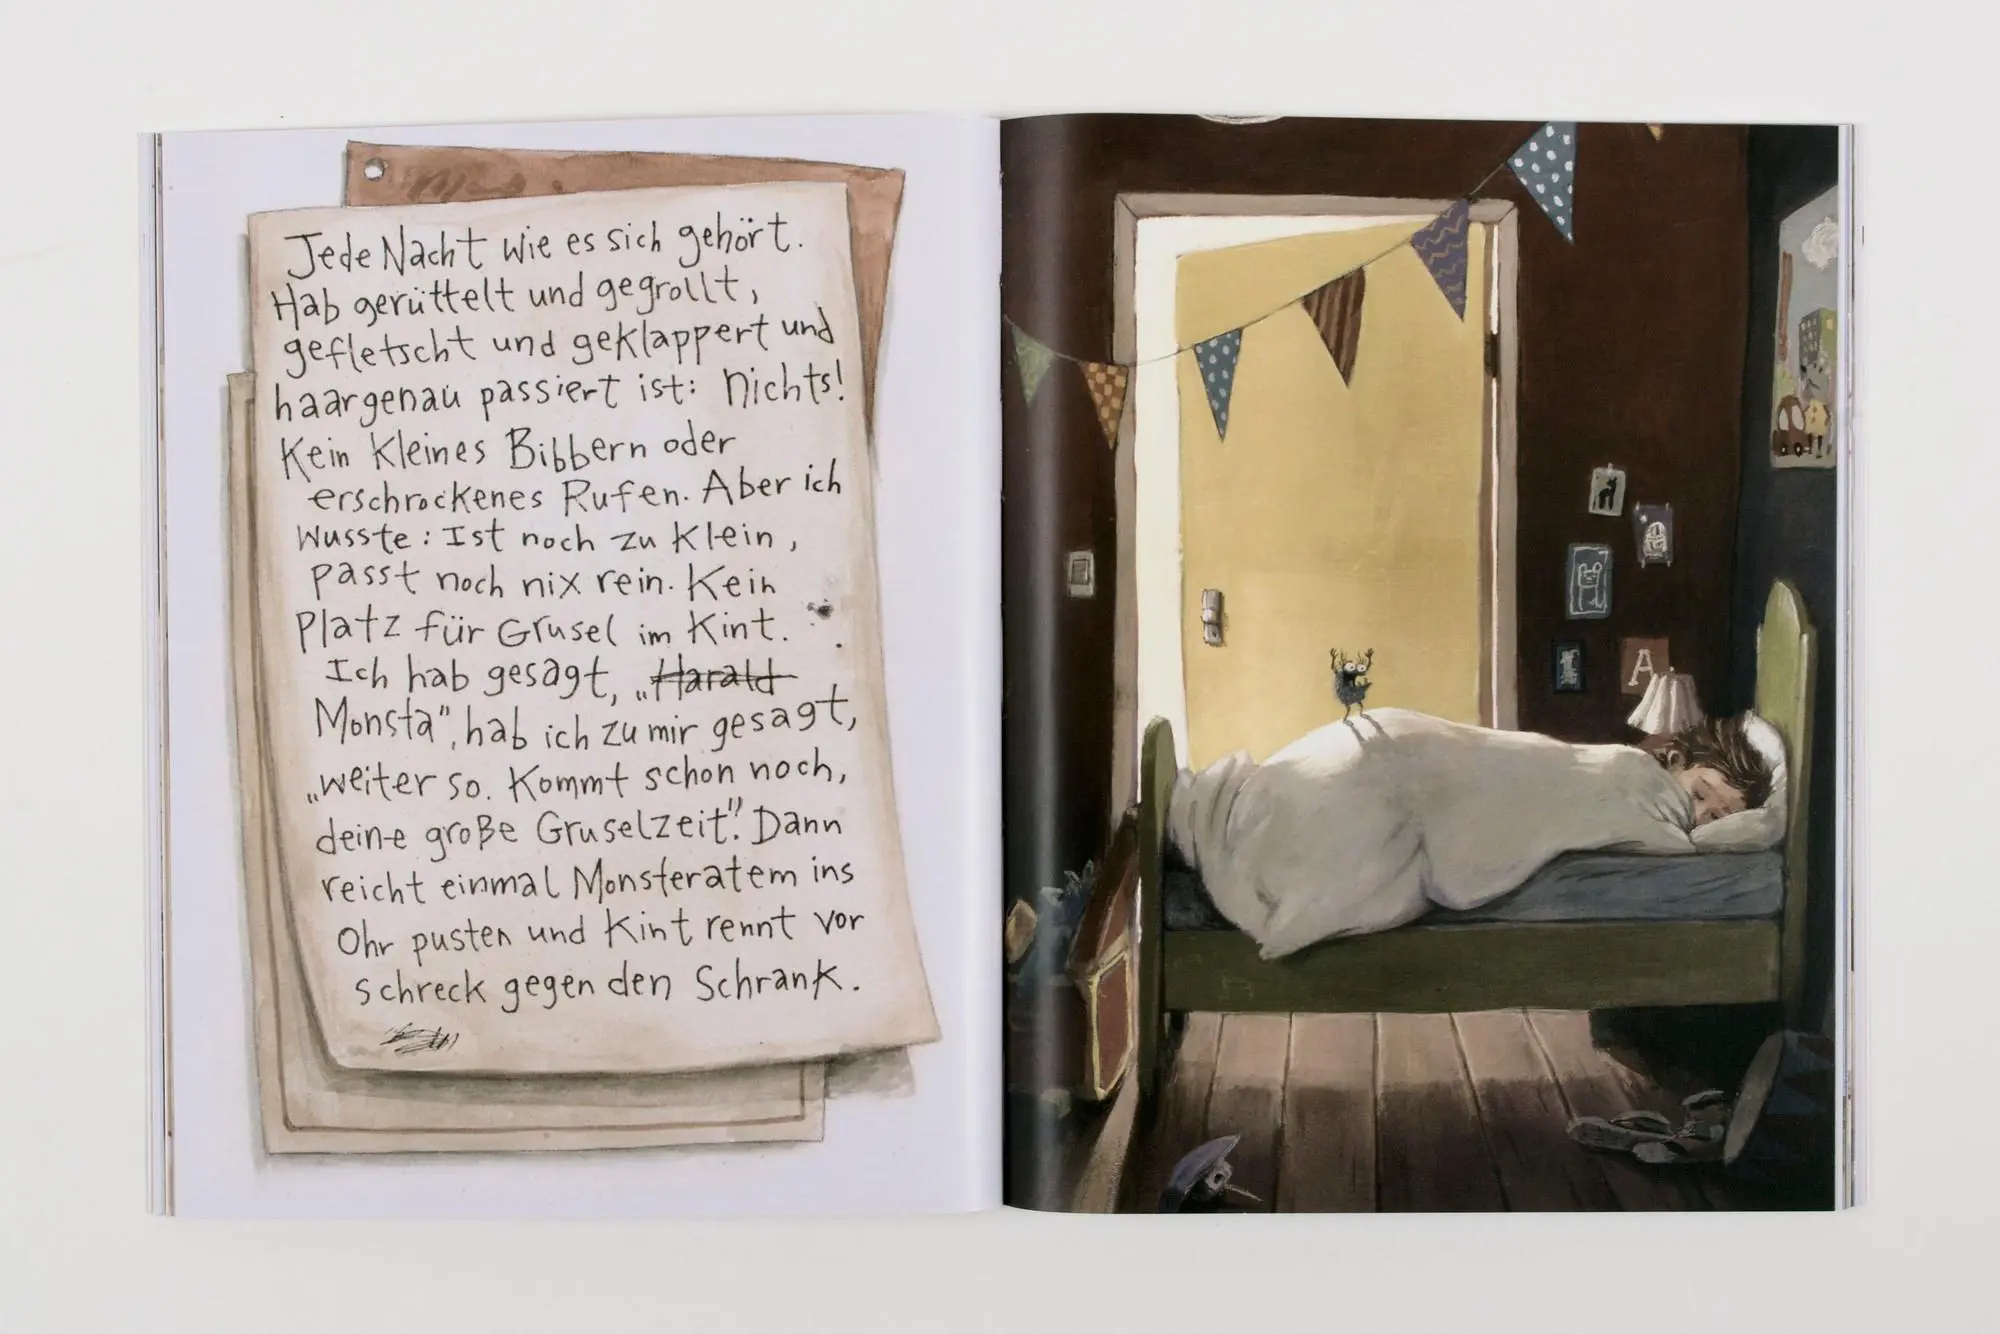 Jede Nacht wie es sich gehört.
Hab gerüttelt und gegrollt,
gefletscht und geklappert und
haargenau passiert ist: Nichts!
Kein kleines Bibbern oder
erschrockenes Rufen. Aber ich
wusste: Ist noch zu klein,
passt noch nix rein. Kein
Platz für Grusel im Kint.
Ich hab gesagt, „Harald
Monsta", hab ich zu mir gesagt,
„weiter so. Kommt schon noch,
deine große Gruselzeit!" Dann
reicht einmal Monsteratem ins
Ohr pusten und Kint rennt vor
schreck gegen den Schrank.
A